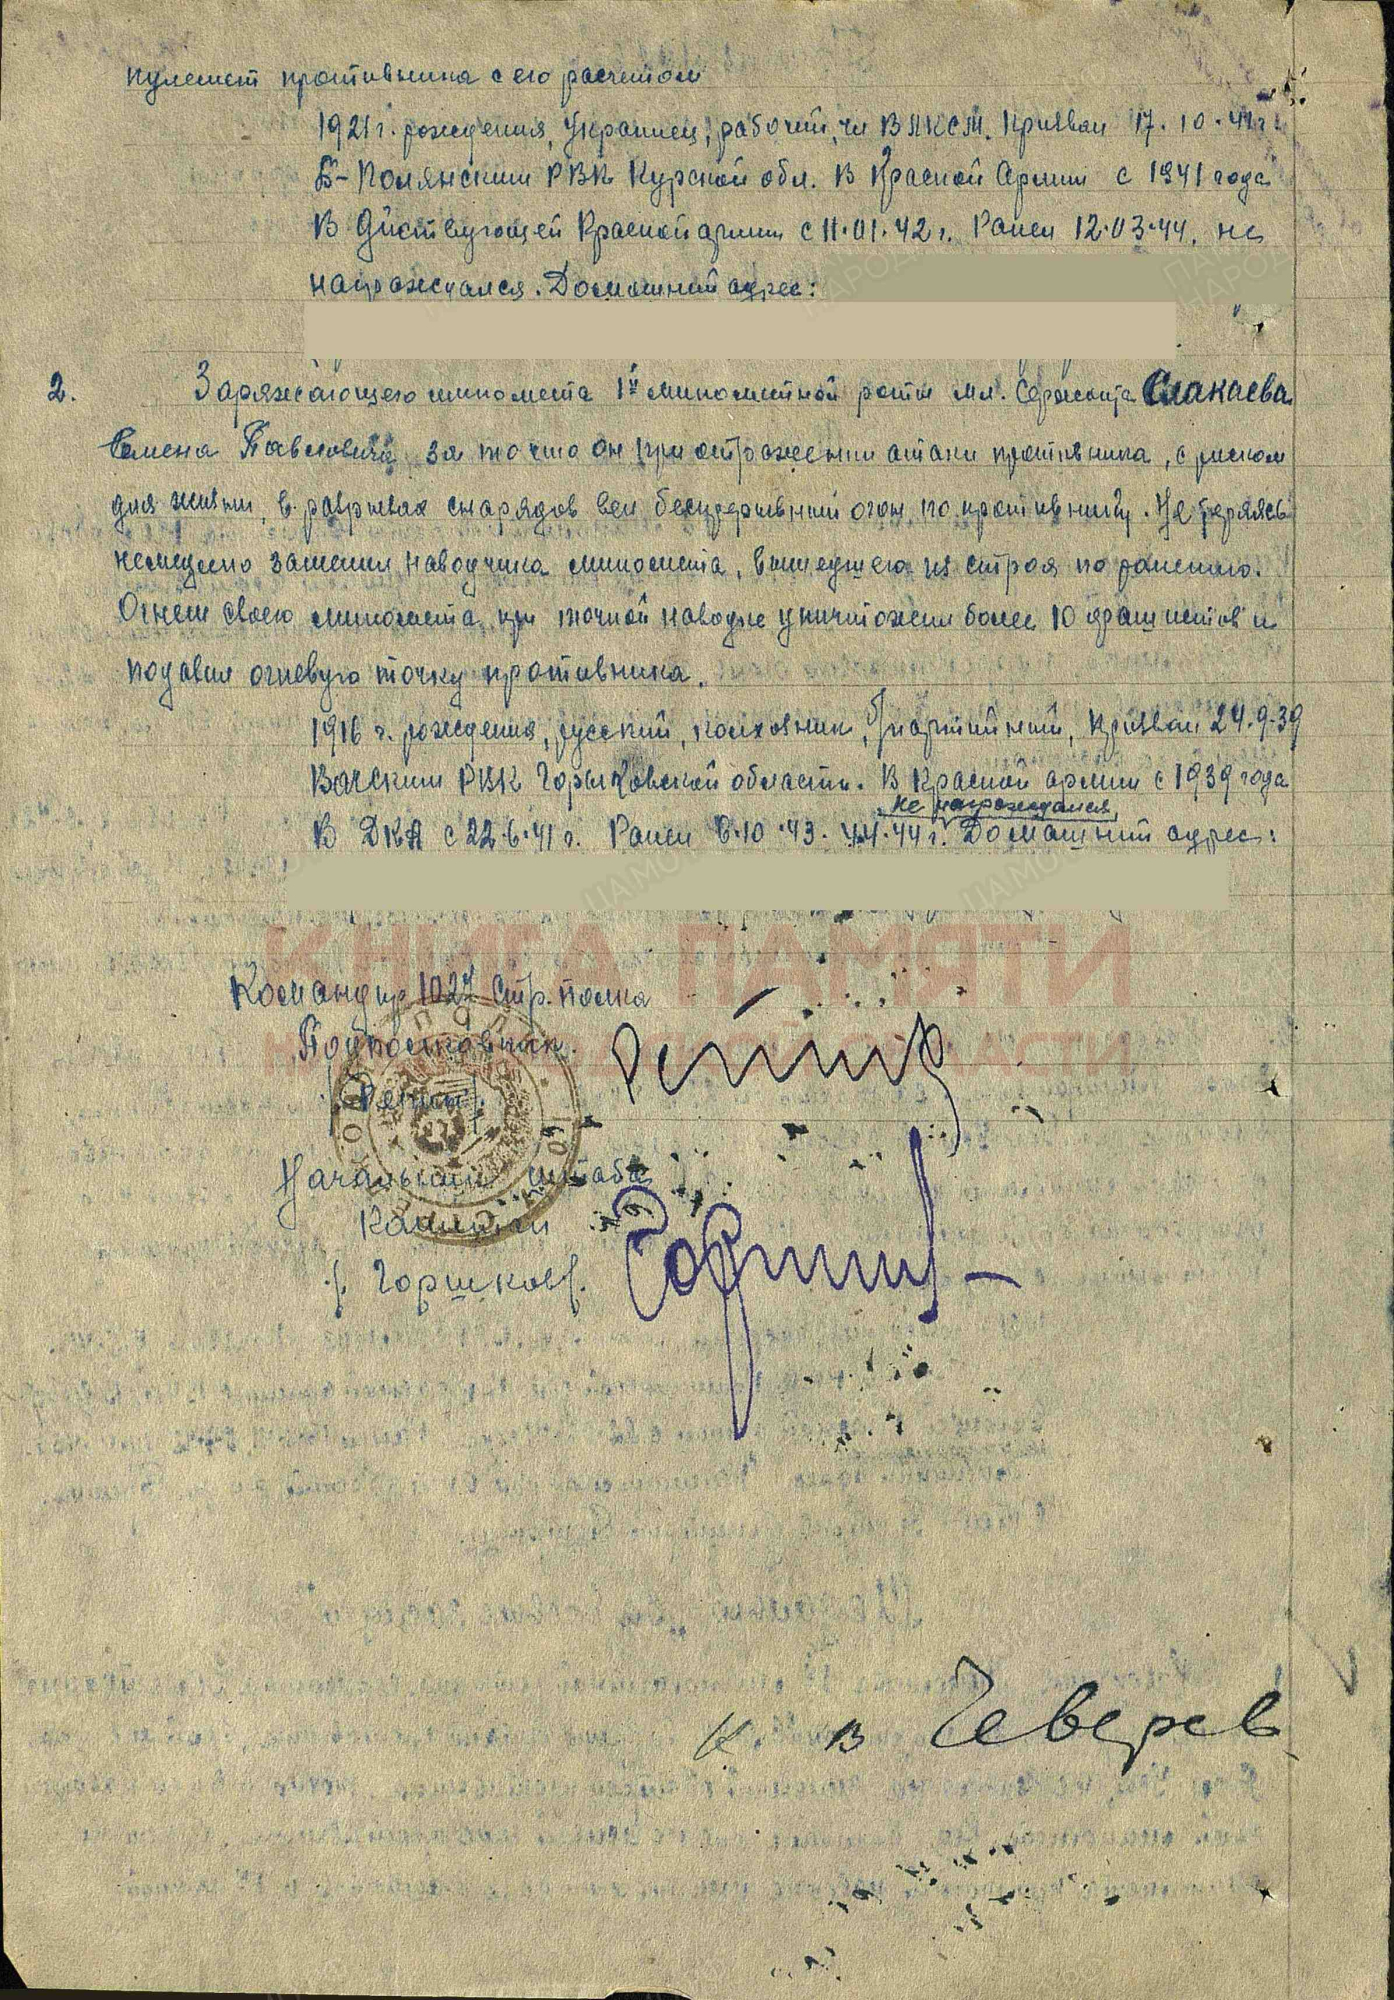 пулемет противника с его расчетом
1921 г. рождения, Украинец, рабочий, чл ВЛКСМ. Призван 17.10.41 г.
Б-Полянским РВК Курской обл. В Красной Армии с 1941 года
В Действующей Красной армии с 11.01.42 г. Ранен 12.03.44. не
награждался. Домашний адрес:
2. Заряжающего миномета 1й минометной роты мл. Сержанта
Семена Павловича за то что он при отражении атаки противника, с риском
для жизни, в разрывах снарядов вел беспрерывный огонь по противнику. Не теряясь
немедлено заменил наводчика миномета, вышедшего из строя по ранению.
Огнем своего миномета при точной наводке уничтожил более 10 фашистов и
подавил огневую точку противника.
1916 г. рождения, русский, колхозник, б/партийный, Призван 24.9.39
Вачским РВК Горьковской области. В Красной армии с 1939 года
не награждался
В ДКА с 22.6.41 г. Ранен 6.10.43. 4.4.44 г. Домашний адрес:
КНИГА ПАМЯТИ
НИЖЕГОРОДСКОЙ ОБЛАСТИ
Командир 1027 Стр. полка
Подполковник
Начальник штаба
Капитан
/Горшков/.
К В Чеверев